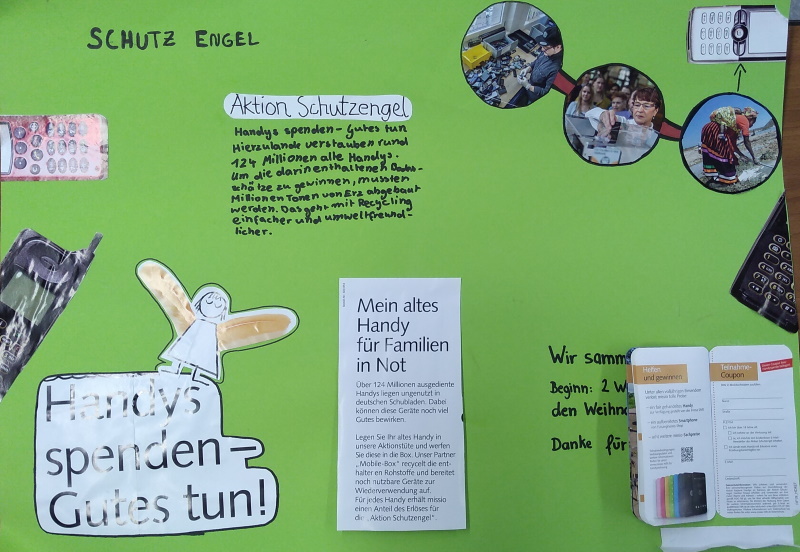 SCHUTZ ENGEL
Aktion Schutzengel
Handys spenden – Gutes tun
Hierzulande verstauben rund
124 Millionen alte Handys.
Um die darin enthaltenen Boden-
schätze zu gewinnen, müssten
Millionen Tonen von Erz abgebaut
werden. Das geht mit Recycling
einfacher und umweltfreund-
licher.
Handys
spenden –
Gutes tun!
Mein altes
Handy
für Familien
in Not
Über 124 Millionen ausgediente
Handys liegen ungenutzt in
deutschen Schubladen. Dabei
können diese Geräte noch viel
Gutes bewirken.
Legen Sie Ihr altes Handy in
unsere Aktionstüte und werfen
Sie diese in die Box. Unser Partner
„Mobile-Box“ recycelt die ent-
halter en Rohstoffe und bereitet
noch nutzbare Geräte zur
Wiederverwendung auf.
Für jedes Handy erhält missio
einen Anteil des Erlöses für
die „Aktion Schutzengel“.
Wir samm
Beginn: 2 W
den Weihn
Danke für
Helfen
und gewinnen
Teilnahme-
Coupon